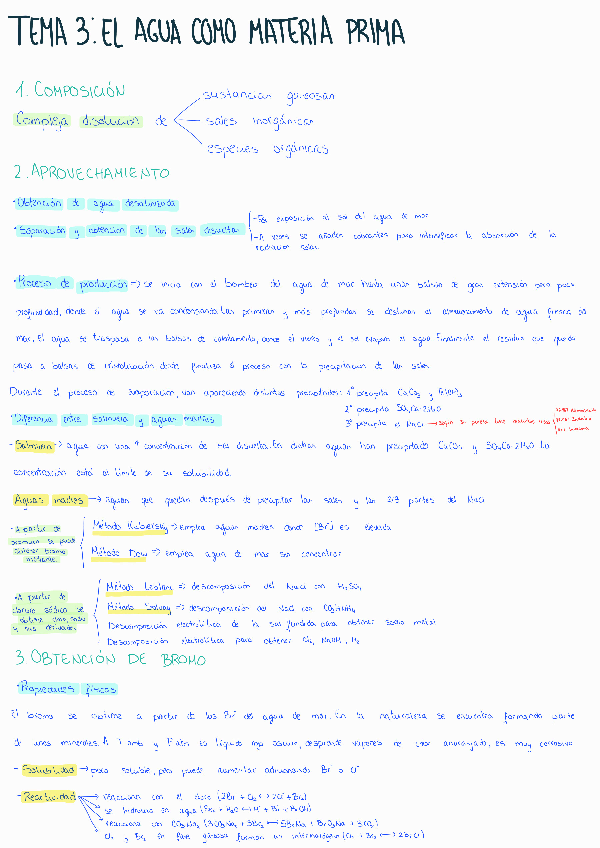 TEMA 3: EL AGUA COMO MATERIA PRIMA
1. COMPOSICIÓN
Compleja disolución de
sustancias gaseosas
sales inorgánicas
especies orgánicas
2. APROVECHAMIENTO
· Obtención de agua desalinizada
· Separación y obtención de las sales disueltas
- Es exposición al sol del agua de mar
- A veces se añaden colorantes para intensificar la absorción de la
radiación solar
· Proceso de producción → se inicia con el bombeo del agua de mar hasta unas balsas de gran extensión pero poca
profundidad, donde el agua se va condensando. Las primeras y más profundas se destinan al almacenamiento de agua
mar. El agua se traspasa a las balsas de calentamiento, donde el viento y el sol evaporan el agua. Finalmente el residuo que queda
pasa a balsas de cristalización donde finaliza el proceso con la precipitación de las sales.
Durante el proceso de evaporación, van apareciendo distintos precipitados: 1º precipita CaCO3 y
2º precipita SO4Ca·2H2O
3º precipita el NaCl →
· Diferencia entre salmuera y aguas madres
- Salmuera → agua con una ↑ concentración de sal disuelta. En dichas aguas han precipitado CaCO3 y SO4Ca·2H2O. La
concentración está al límite de su solubilidad.
Aguas madres → aguas que quedan después de precipitar las sales y las 2/3 partes del NaCl
- A partir de
bromuro se puede
obtener bromo
mediante:
Método Kubersky → emplea aguas madres donde [Br-] es elevada
Método Dow → emplea agua de mar sin concentrar
- A partir de
cloruro sódico se
obtiene cloro, sodio
y sus derivados
Método Leblanc → descomposición del NaCl con H2SO4
Método Solvay → descomposición del NaCl con
Descomposición electrolítica de la sal fundida para obtener sodio metal
Descomposición electrolítica para obtener Cl2, NaOH, H2
3. OBTENCIÓN DE BROMO
· Propiedades físicas
El bromo se obtiene a partir de los Br- del agua de mar. En la naturaleza se encuentra formando parte
de unos minerales. A T amb y P atm es líquido rojo oscuro, desprende vapores de color anaranjado, es muy corrosivo
- Solubilidad → poco soluble, pero puede aumentar adicionando Br- o Cl-
- Reactividad
→ reacciona con el cloro (2Br- + Cl2 → 2Cl- + Br2)
→ se hidroliza en agua (Br2 + H2O ↔ H+ + Br- + BrOH)
→ reacciona con CO3Na2 (3CO3Na2 + 3Br2 ↔ 5BrNa + BrO3Na + 3CO2)
→ Cl2 y Br2 en fase gaseosa forman un interhalógeno (Cl2 + Br2 ↔ 2BrCl)